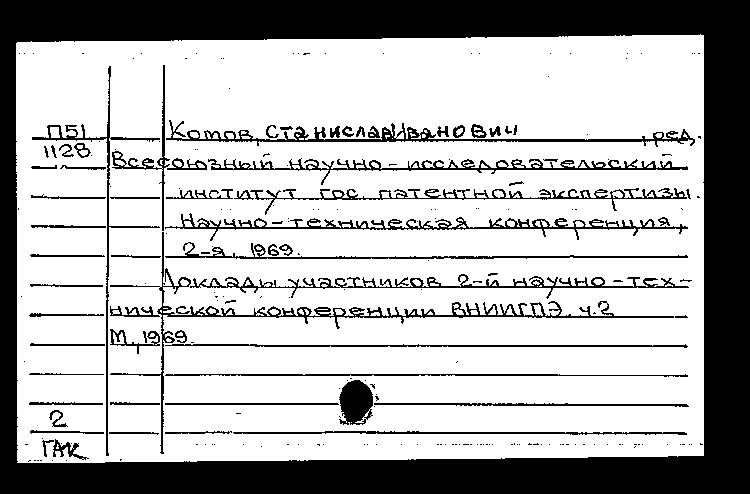 П51 Котов, Станислав Иванович, ред.
1128
Всесоюзный научно-исследовательский
институт гос. патентной экспертизы.
Научно-техническая конференция,
2-я. 1969.
Доклады участников 2-й научно-тех-
нической конференции ВНИИГПЭ. ч.2
М., 1969.
2
ГАК